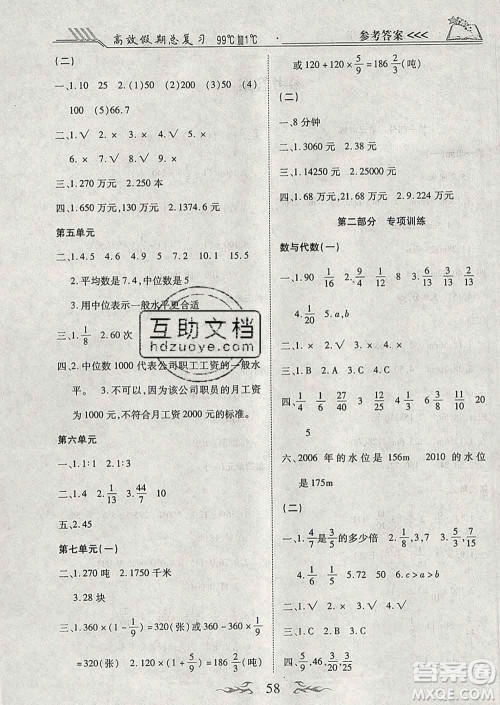 高效假期总复习 99℃+1℃
参考答案<<<
(二)
一、1.10 25 (2)75 (3)50 (4)
100 (5)66.7
二、1.√ 2.× 3.√ 4.×
三、1.270 万元 2.250 本
四、1.650 万元,130 万元 2.1374.6 元
第五单元
一、1.4.5 2.15 3.7 4.9 5.10.9 6.1
二、1.平均数是 7,中位数是 5
3.用中位数表示一般水平更合适
三、1. 1/8 2.60 次
四、2.中位数 1000 代表公司职工工资的一般水
平。 3.不可以,因为该公司职员的月工资
为 1000 元,不符合月工资 2000 元的标准。
第六单元
一、1.1∶1 2.1∶5
二、1.4 2. 1/13 3. 44/7 4. 1/10
五、2.45
第七单元(一)
一、1.270 吨 2.1750 千米
3.28 块
三、1.360×(1-1/9)=320(张) 或 360-360×1/9
=320(张) 2.120×(1+5/9)=186 2/3(吨)
或 120+120×5/9=186 2/3(吨)
(二)
一、8 分钟
二、1.3060 元 2.38 元
三、1.14250 元
四、1.68 万元,1.68 万元
第二部分 专项训练
数与代数(一)
一、1.90 1/16 2.24 12 5 8 3.
4. 1/20 5.a,b
二、1.√ 2.× 3.×
三、1.B 2.C
四、 1/4 11/16 25/40 27/10 21 6/7
六、2006 年的水位是 156m 2010 的水位
是 175m
(二)
一、1. 4/7 是 3/5 的多少倍 2. 1/8, 4/9 3.
5/8 4. 5. 6.< > >
二、1.√ 2.× 3.√ 4.×
三、1.C 2.C 3.D
四、 5/9,46, 25/24, 1/15
互助文档
hdzuoye.com
58
答案圈
MXQE.COM